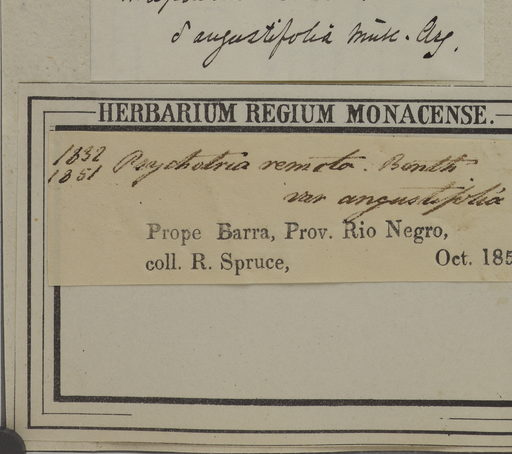 δ angustifolia Müll. Arg.
HERBARIUM REGIUM MONACENSE.
1832 Psychotria remota. Benth
1851
var angustifolia
Prope Barra, Prov. Rio Negro,
coll. R. Spruce, Oct. 185